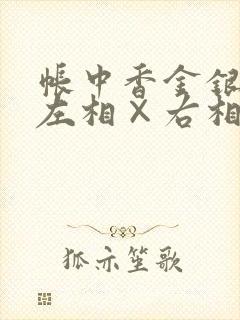 帐中香金银
左相×右相
狐亦笙歌